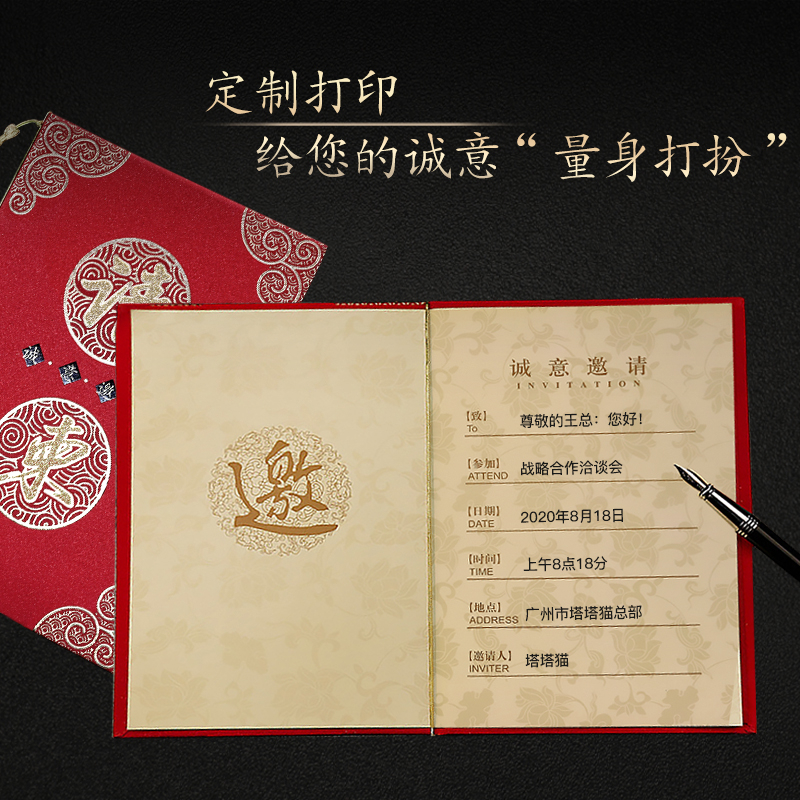 定制打印
给您的诚意“量身打扮”
请
柬
邀
诚意邀请
INVITATION
【致】 尊敬的王总：您好！
To
【参加】 战略合作洽谈会
ATTEND
【日期】 2020年8月18日
DATE
【时间】 上午8点18分
TIME
【地点】 广州市塔塔猫总部
ADDRESS
【邀请人】 塔塔猫
INVITER